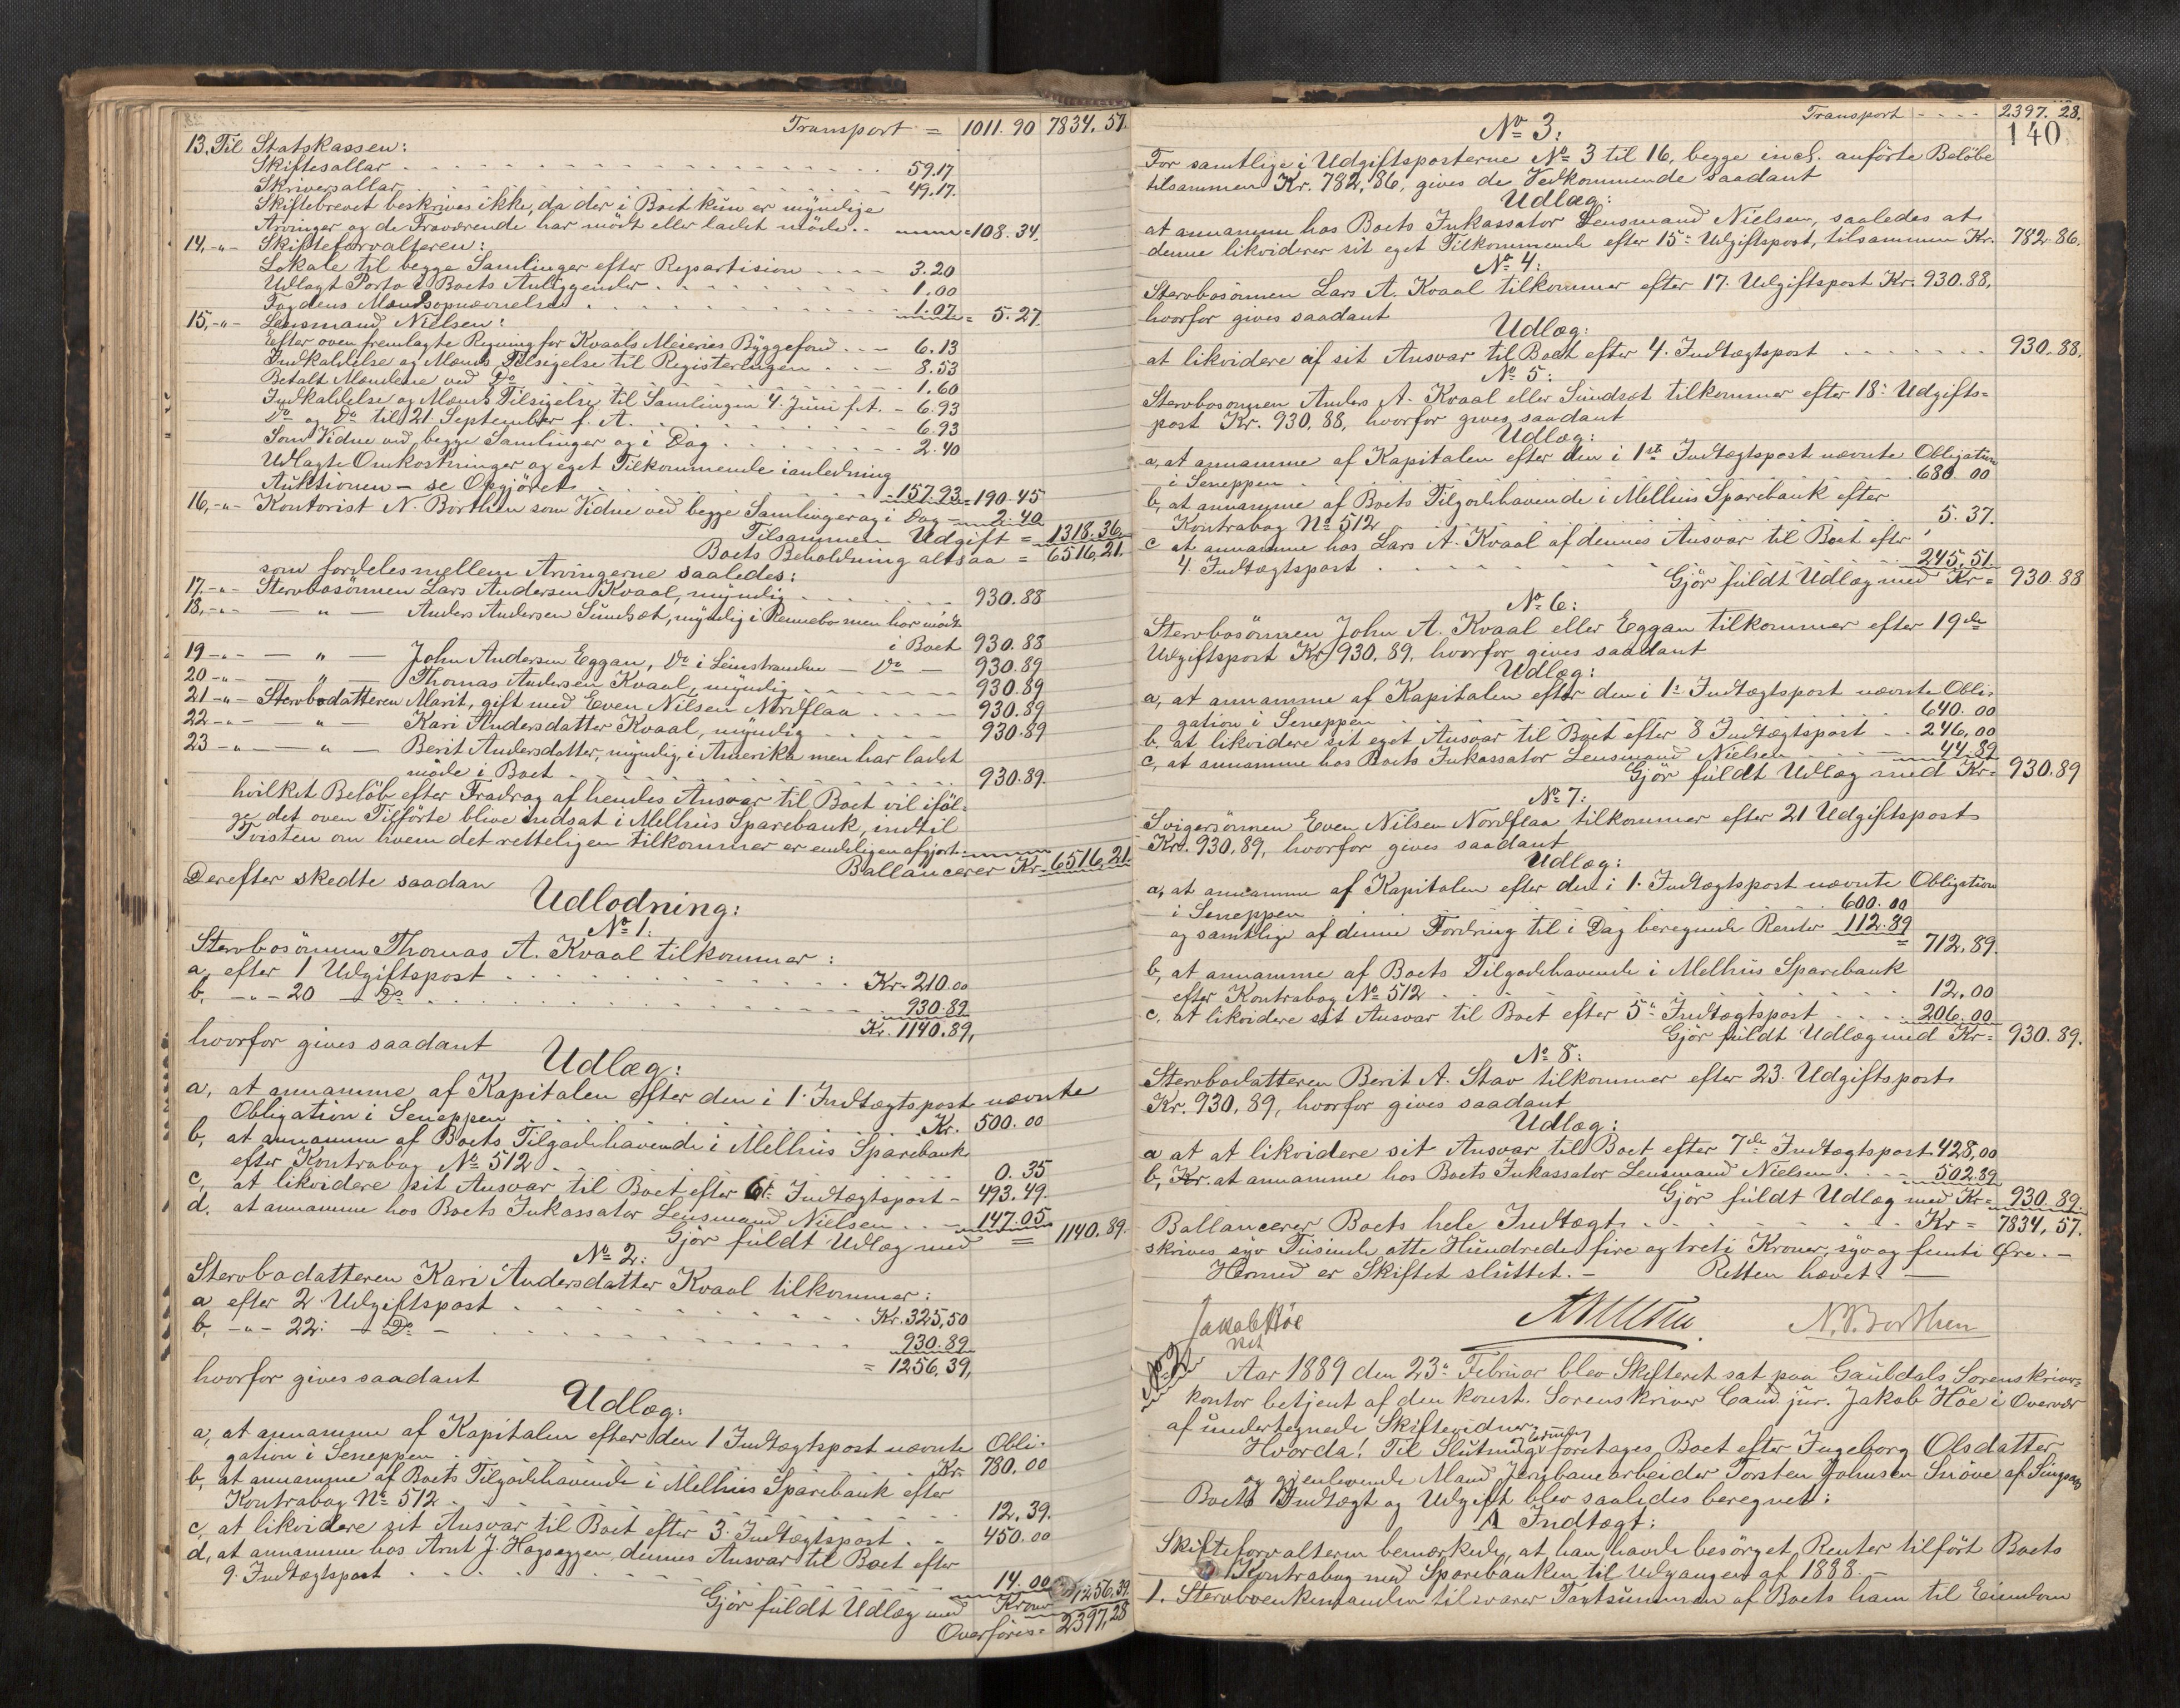 Transport = 1011.90 7834.57.
13. Til Statskassen:
Skiftesallar - - - 59.17
Skriversallar - - - 49.17.
Skiftebrevet beskrives ikke, da der i Boet kun er myndige
Arvinger og de Fraværende har mödt eller ladet möde. = 108.34.
14. -"- Skifteforvalteren:
Lokale til begge Samlinger efter Repartision - - - 3.20
Udlagt Porto i Boets Anliggender - - - 1.00
Fogdens Mændsopnævnelse - - - 1.07 = 5.27.
15. -"- Lensmand Nielsen:
Efter oven fremlagte Regning for Kvaals Meieries Byggefond - - - 6.13
Indkaldelse og Mænds Tilsigelse til Registeringen - - - 8.53
Betalt Mændene ved Do - - - 1.60
Indkaldelse og Mænds Tilsigelse til Samlingen 4. Juni f. A. - 6.93
Do og Do til 21 September f. A. - - - 6.93
Som Vidne ved begge Samlinger og i Dag - - - 2.40
Udlagte Omkostninger og eget Tilkommende i anledning
Auktionen - se Opgjöret - - - 157.93 = 190.45
16. -"- Kontorist N. Borthen som Vidne ved begge Samlinger og i Dag - 2.40
Tilsammen Udgift = 1318.36
Boets Beholdning altsaa = 6516.21.
som fordeles mellem Arvingerne saaledes:
17. -"- Stervbosönnen Lars Andersen Kvaal, myndig - - - 930.88
18. -"- - " - Anders Andersen Sundset, myndig i Rennebo men har mödt
i Boet 930.88
19 -"- - " - John Andersen Eggan, Do i Leinstranden - Do - 930.89
20 -"- - " - Thomas Andersen Kvaal, myndig - - - 930.89
21 -"- Stervbodatteren Marit, gift med Even Nilsen Nordflaa - - - 930.89
22 -"- - " - Kari Andersdatter Kvaal, myndig - - - 930.89
23 -"- - " - Berit Andersdatter, myndig, i Amerika men har ladet
möde i Boet - - - 930.89.
hvilket Belöb efter Fradrag af hendes Ansvar til Boet vil iföl-
ge det oven Tilförte blive indsat i Melhus Sparebank, indtil
Tvisten om hvem det retteligen tilkommer er endeligen afgjort.
Ballancerer Kr. 6516.21.
Derefter skedte saadan
Udlodning:
No 1:
Stervbosönnen Thomas A. Kvaal tilkommer:
a, efter 1 Udgiftspost - - - Kr. 210.00
b, -"- 20 - Do - - - 930.89
Kr. 1140.89,
hvorfor gives saadant
Udlæg:
a, at annamme af Kapitalen efter den i 1. Indtægtspost nævnte
Obligation i Seneppen - - - Kr. 500.00
b, at annamme af Boets Tilgodehavende i Melhus Sparebank
efter Kontrabog No 512 - - - 0.35
c, at likvidere sit Ansvar til Boet efter 6te Indtægtspost - 493.49.
d, at annamme hos Boets Inkassator Lensmand Nielsen - - - 147.05
Gjör fuldt Udlæg med = 1140.89.
No 2:
Stervbodatteren Kari Andersdatter Kvaal tilkommer:
a, efter 2 Udgiftspost - - - Kr. 325,50
b, -"- 22: - Do - - - 930.89
= 1256,39,
hvorfor gives saadant
Udlæg:
a, at annamme af Kapitalen efter den 1 Indtægtspost nævnte Obli-
gation i Seneppen - - - Kr. 780,00
b, at annamme af Boets Tilgodehavende i Melhus Sparebank efter
Kontrabog No 512 - - - 12,39.
c, at likvidere sit Ansvar til Boet efter 3. Indtægtspost - - 450.00
d, at annamme hos Arnt J. Hagseggen, dennes Ansvar til Boet efter
9. Indtægtspost - - - 14.00
Gjör fuldt Udlæg med Kroner 1256,39.
Overföres = 2397,28
Transport - - - 2397.28.
140
No 3:
For samtlige i Udgiftsposterne No 3 til 16, begge incl. anförte Belöbe
tilsammen Kr. 782,86, gives de Vedkommende saadant
Udlæg:
at annamme hos Boets Inkassator Lensmand Nielsen, saaledes at
denne likviderer sit eget Tilkommende efter 15: Udgiftspost, tilsammen Kr. 782.86.
No 4:
Stervbosönnen Lars A. Kvaal tilkommer efter 17. Udgiftspost Kr. 930.88,
hvorfor gives saadant
Udlæg:
at likvidere af sit Ansvar til Boet efter 4. Indtægtspost - - - 930.88.
No 5:
Stervbosönnen Anders A. Kvaal eller Sundset tilkommer efter 18: Udgifts-
post Kr. 930,88, hvorfor gives saadant
Udlæg:
a, at annamme af Kapitalen efter den i 1ste Indtægtspost nævnte Obligation
i Seneppen - - - 680.00
b, at annamme af Boets Tilgodehavende i Melhus Sparebank efter
Kontrabog No 512 - - - 5.37.
c at annamme hos Lars A. Kvaal af dennes Ansvar til Boet efter
4. Indtægtspost - - - 245,51.
Gjör fuldt Udlæg med Kr = 930.88
No 6:
Stervbosönnen John A. Kvaal eller Eggan tilkommer efter 19de
Udgiftspost Kr. 930.89, hvorfor gives saadant
Udlæg:
a, at annamme af Kapitalen efter den i 1: Indtægtspost nævnte Obli-
gation i Seneppen - - - 640.00
b, at likvidere sit eget Ansvar til Boet efter 8 Indtægtspost - - 246.00
c, at annamme hos Boets Inkassator Lensmand Nielsen - - - 44.89
Gjör fuldt Udlæg med Kr = 930.89
No 7:
Svigersönnen Even Nilsen Nordflaa tilkommer efter 21 Udgiftspost
Kr. 930,89, hvorfor gives saadant
Udlæg:
a, at annamme af Kapitalen efter den i 1. Indtægtspost nævnte Obligation
i Seneppen - - - 600.00
og samtlige af denne Fordring til i Dag beregnede Renter 112.89
= 712,89.
b, at annamme af Boets Tilgodehavende i Melhus Sparebank
efter Kontrabog No 512 - - - 12,00
c, at likvidere sit Ansvar til Boet efter 5te Indtægtspost - - - 206.00
Gjör fuldt Udlæg med Kr = 930.89.
No 8:
Stervbodatteren Berit A. Stav tilkommer efter 23. Udgiftspost
Kr. 930,89, hvorfor gives saadant
Udlæg:
a at at likvidere sit Ansvar til Boet efter 7de Indtægtspost 428,00
b, Kr. at annamme hos Boets Inkassator Lensmand Nielsen - - - 502.89
Gjör fuldt Udlæg med Kr = 930.89.
Ballancerer Boets hele Indtægt - - - Kr = 7834,57.
skrives syv Tusinde otte Hundrede fire og treti Kroner, syv og femti Øre. -
Hermed er Skiftet sluttet. - Retten hævet. -
Jakob Höe
kst
N. P. Borthen
No 2
Aar 1889 den 23: Februar blev Skifteret sat paa Gauldals Sorenskriver-
kontor betjent af den konst. Sorenskriver Cand. jur. Jakob Höe i Overvær
af undertegnede Skiftevidner.
Hvorda! Til Slutning foretages Boet efter Ingeborg Olsdatter
og gjenlevende Mand Jernbanearbeider Torsten Johnsen Snöve af Singsaas
Boets Indtægt og Udgift blev saaledes beregnet:
A Indtægt:
Skifteforvalteren bemærkede, at han havde besörget Renter tilfört Boets
Kontrabog med Sparebanken til Udgangen af 1888. -
1. Stervboenkemanden tilsvarer Taxtsummen af Boets ham til Eiendom